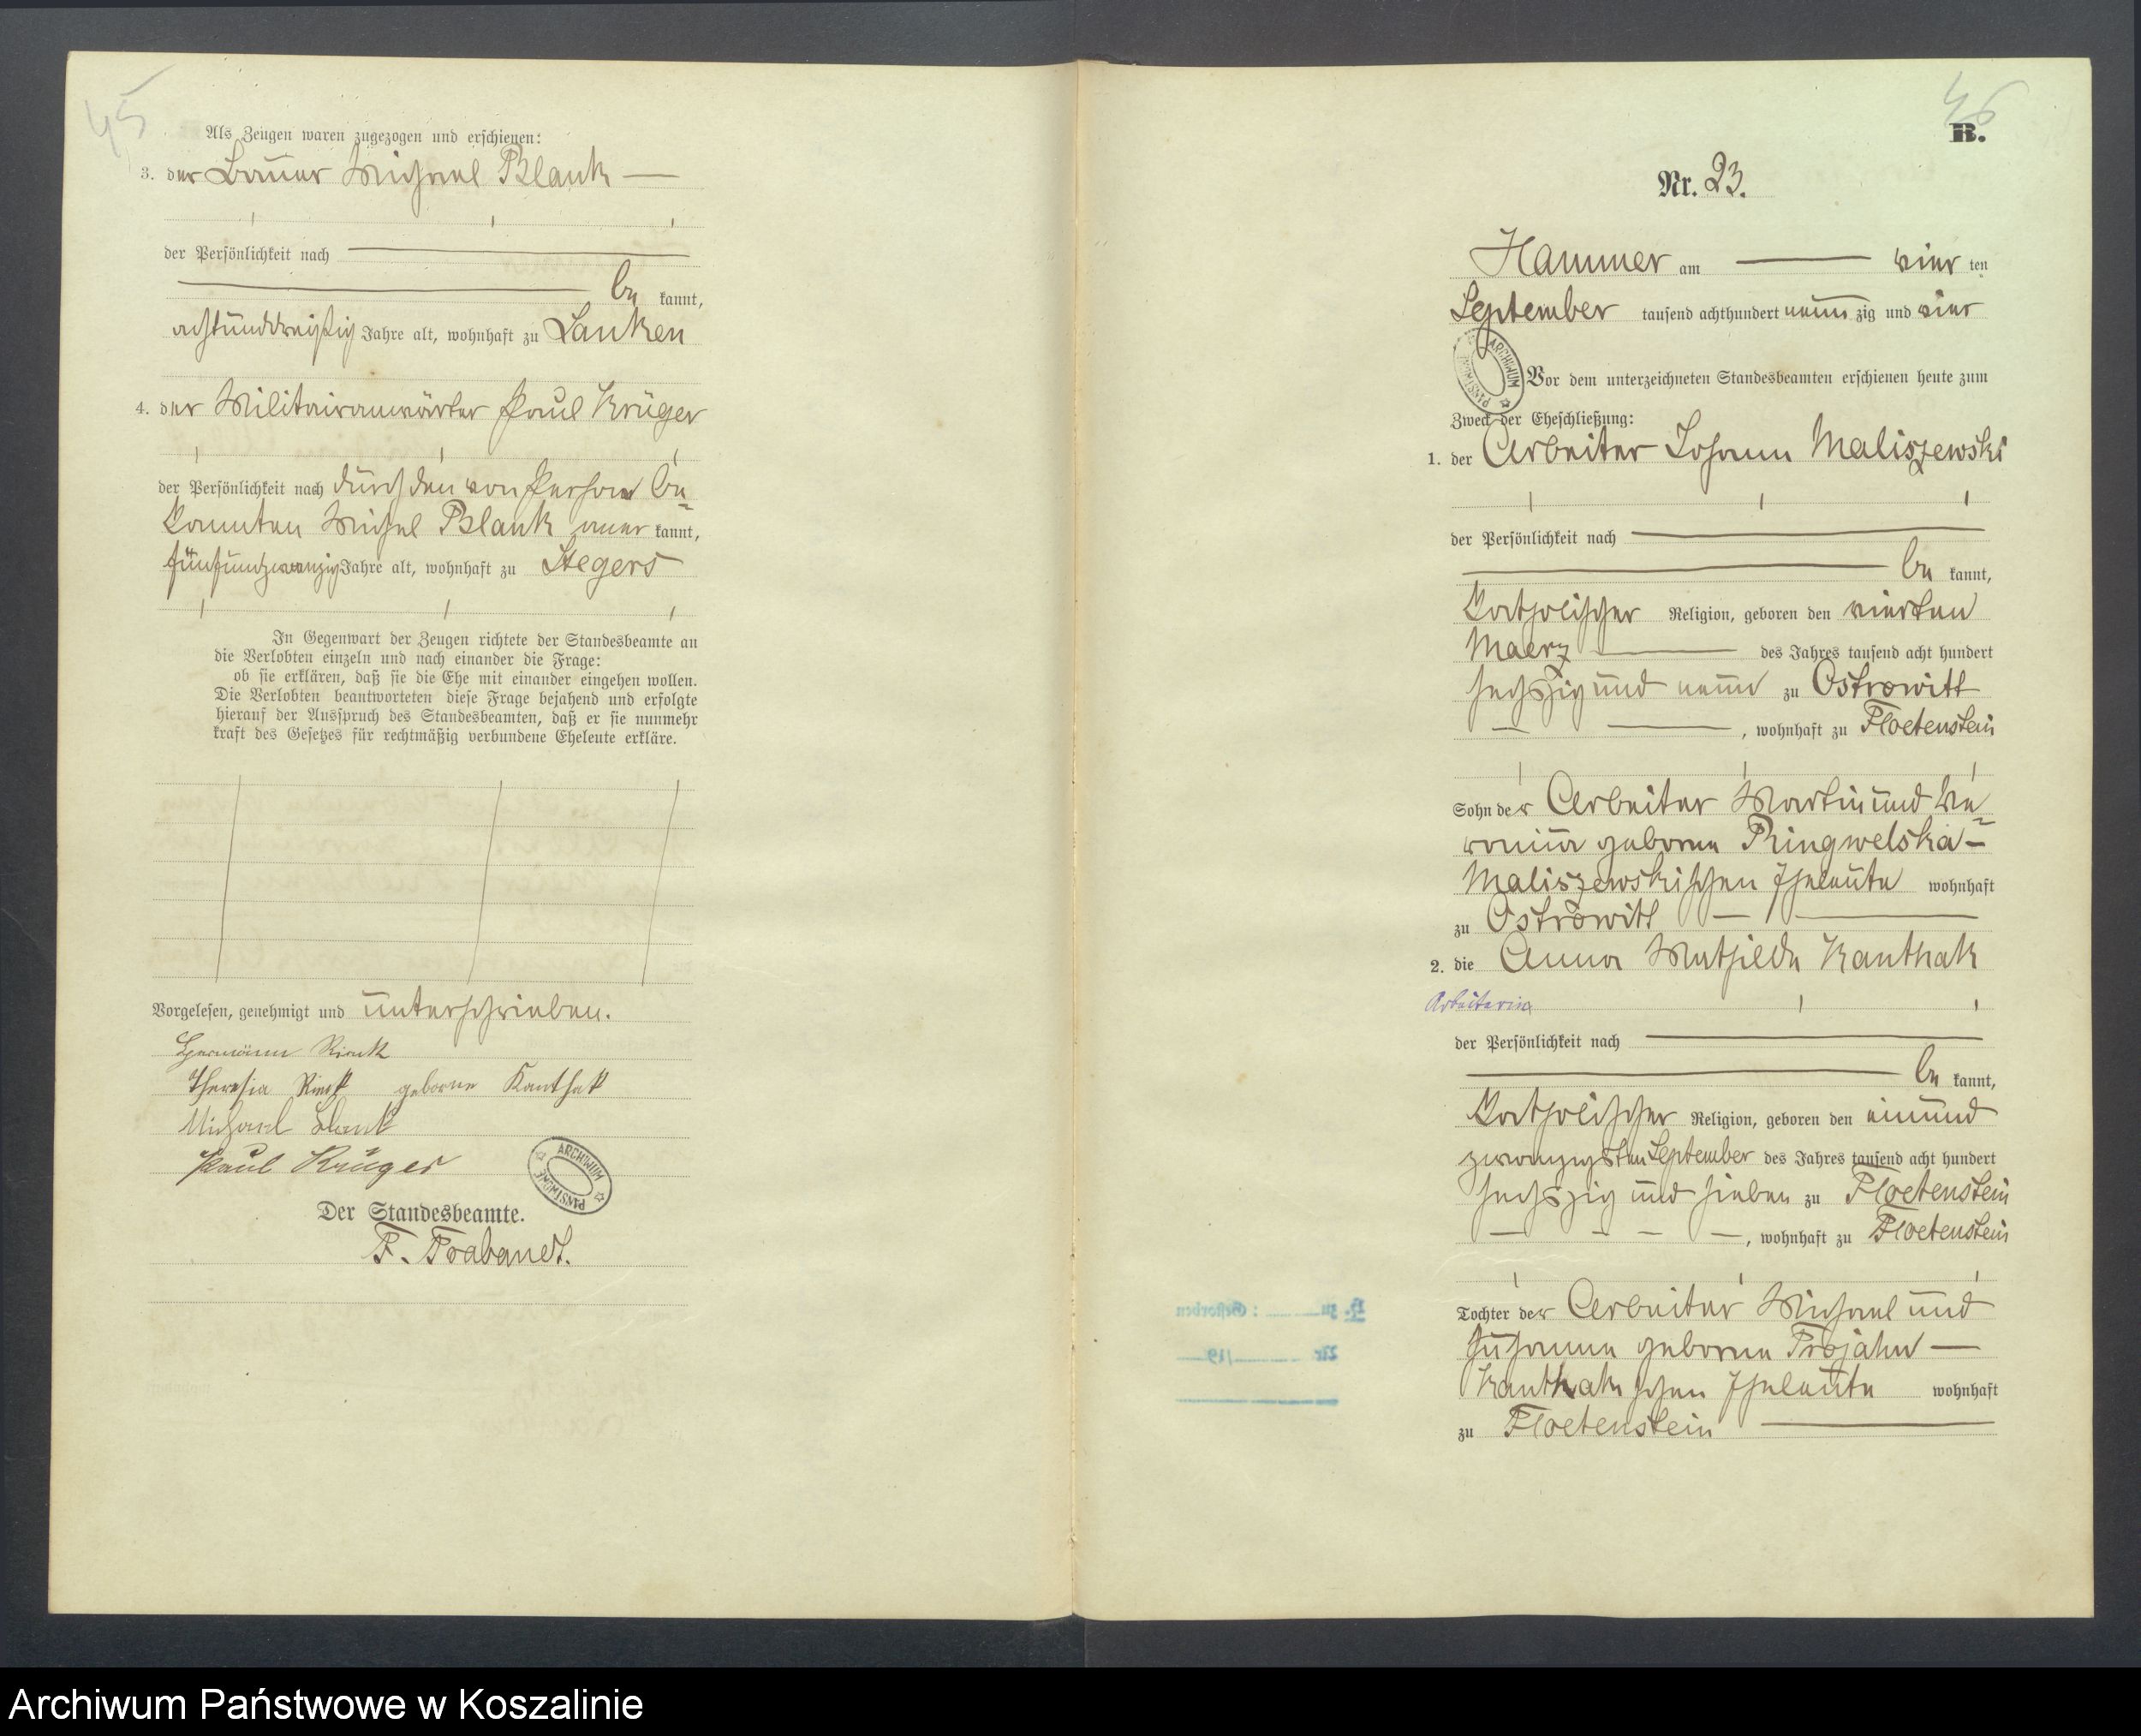 45
Als Zeugen waren zugezogen und erschienen:
3. der Bauer Michael Blank —
der Persönlichkeit nach
be kannt,
achtunddreißig Jahre alt, wohnhaft zu Lanken
4. der Militairanwärter Paul Krüger
der Persönlichkeit nach durch den von Person be-
kannten Michel Blank aner kannt,
fünfundzwanzig Jahre alt, wohnhaft zu Stegers
In Gegenwart der Zeugen richtete der Standesbeamte an
die Verlobten einzeln und nach einander die Frage:
ob sie erklären, daß sie die Ehe mit einander eingehen wollen.
Die Verlobten beantworteten diese Frage bejahend und erfolgte
hierauf der Ausspruch des Standesbeamten, daß er sie nunmehr
kraft des Gesetzes für rechtmäßig verbundene Eheleute erkläre.
Vorgelesen, genehmigt und unterschrieben.
Hermann Rieck
Theresia Rieck geborne Kanthak
Michael Blank
Paul Krüger
ARCHIWUM PAŃSTWOWE
Der Standesbeamte.
F. Trabandt.
46
B.
Nr. 23.
Hammer am — vier ten
September tausend achthundert neun zig und vier
ARCHIWUM PAŃSTWOWE
Vor dem unterzeichneten Standesbeamten erschienen heute zum
Zweck der Eheschließung:
1. der Arbeiter Johann Maliszewski
der Persönlichkeit nach
be kannt,
katholischer Religion, geboren den vierten
Maerz — des Jahres tausend acht hundert
sechszig und neun zu Ostrowitt
— —, wohnhaft zu Floetenstein
Sohn der Arbeiter Martin und Ve-
ronica geborne Ringwelska-
Maliszewskischen Eheleute wohnhaft
zu Ostrowitt — —
2. die Anna Mathilde Kanthak
Arbeiterin
der Persönlichkeit nach
be kannt,
katholischer Religion, geboren den einund
zwanzigsten September des Jahres tausend acht hundert
sechszig und sieben zu Floetenstein
— — — —, wohnhaft zu Floetenstein
Tochter der Arbeiter Michael und
Susanna geborne Trojahn —
Kanthakschen Eheleute wohnhaft
zu Floetenstein —
H. zu : Gestorben
Nr /19
Archiwum Państwowe w Koszalinie